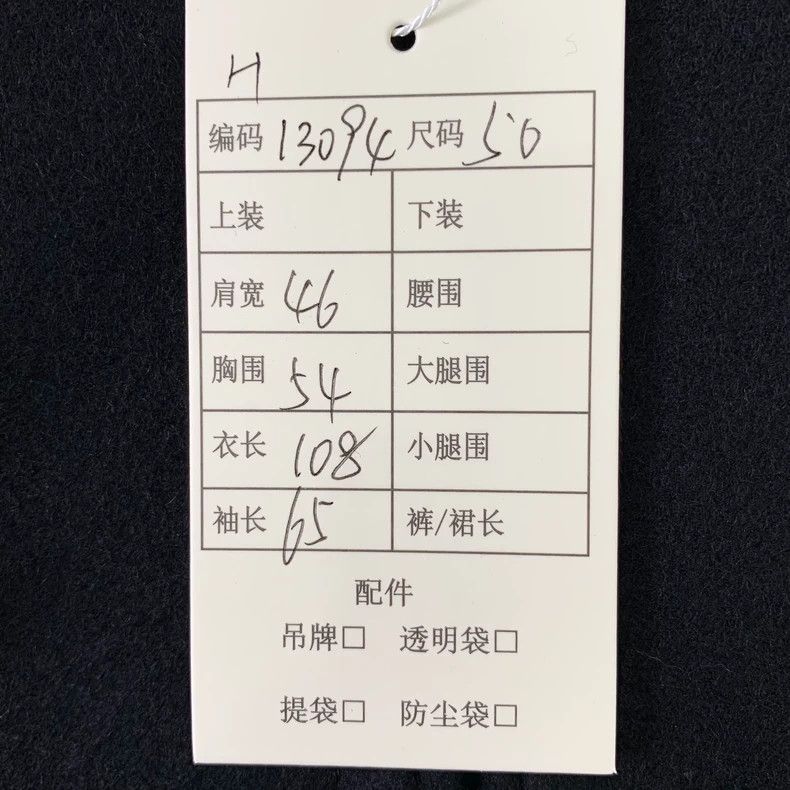 H
编码 13094 尺码 50
上装 下装
肩宽 46 腰围
胸围 54 大腿围
衣长 108 小腿围
袖长 65 裤/裙长
配件
吊牌□ 透明袋□
提袋□ 防尘袋□